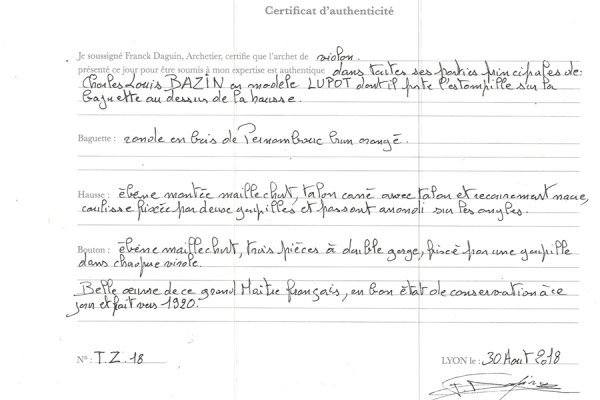 Certificat d'authenticité
Je soussigné Franck Daguin, Archetier, certifie que l'archet de violon.
présenté ce jour pour être soumis à mon expertise est authentique dans toutes ses parties principales de:
Charles Louis BAZIN en modèle LUPOT dont il porte l'estampille sur la
baguette au dessus de la hausse.
Baguette: ronde en bois de Pernambouc brun orangé.
Hausse: ébène montée maillechort, talon carré avec talon et recouvrement nacre,
coulisse fixée par deux goupilles et passant arrondi sur les angles.
Bouton: ébène maillechort, trois pièces à double gorge, fixé par une goupille
dans chaque virole.
Belle œuvre de ce grand Maître français, en bon état de conservation à ce
jour et fait vers 1920.
N°: T.Z.18
LYON le: 30 Août 2018